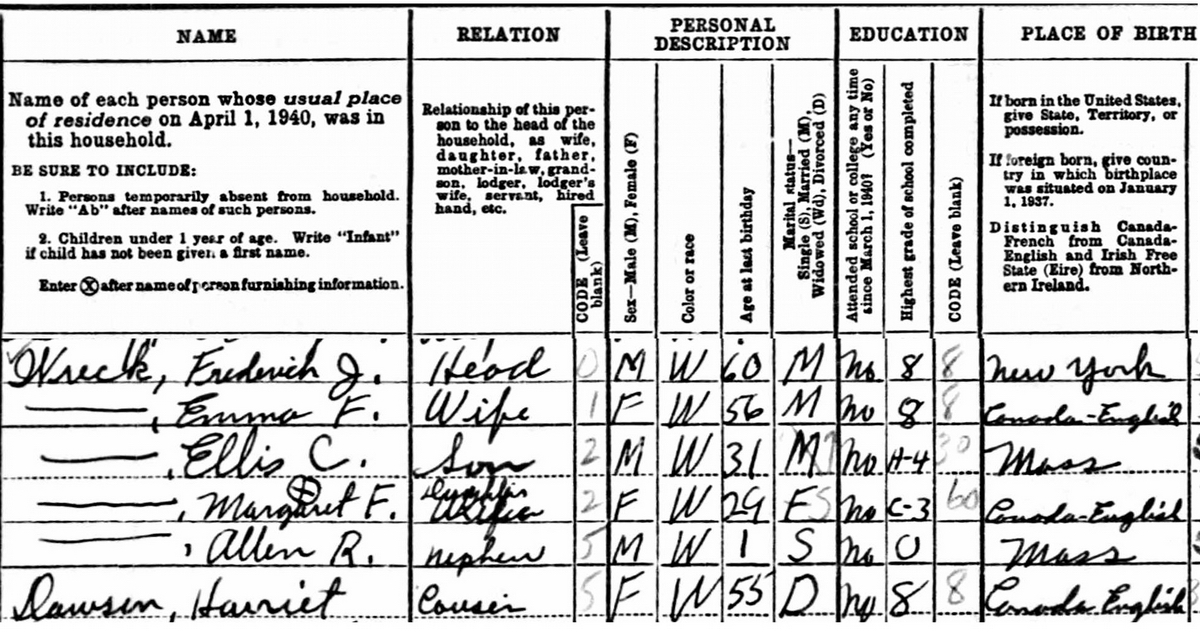 NAME
RELATION
PERSONAL DESCRIPTION
EDUCATION
PLACE OF BIRTH
Name of each person whose usual place
of residence on April 1, 1940, was in
this household.
BE SURE TO INCLUDE:
1. Persons temporarily absent from household.
Write "Ab" after names of such persons.
2. Children under 1 year of age. Write "Infant"
if child has not been given a first name.
Enter Ⓧ after name of person furnishing information.
Relationship of this per-
son to the head of the
household, as wife,
daughter, father,
mother-in-law, grand-
son, lodger, lodger's
wife, servant, hired
hand, etc.
CODE (Leave
blank)
Sex—Male (M), Female (F)
Color or race
Age at last birthday
Marital status—
Single (S), Married (M),
Widowed (Wd), Divorced (D)
Attended school or college any time
since March 1, 1940? (Yes or No)
Highest grade of school completed
CODE (Leave blank)
If born in the United States,
give State, Territory, or
possession.
If foreign born, give coun-
try in which birthplace
was situated on January
1, 1937.
Distinguish Canada-
French from Canada-
English and Irish Free
State (Eire) from North-
ern Ireland.
Wreck, Frederick J. Head 0 M W 60 M No 8 8 New York
——, Emma F. Wife 1 F W 56 M No 8 8 Canada-English
——, Ellis C. Son 2 M W 31 M 7 No H-4 30 Mass
——, Margaret F. Daughter 2 F W 29 S No C-3 60 Canada-English
——, Allen R. Nephew 5 M W 1 S No 0 Mass
Dawson, Harriet Cousin 5 F W 55 D No 8 8 Canada English